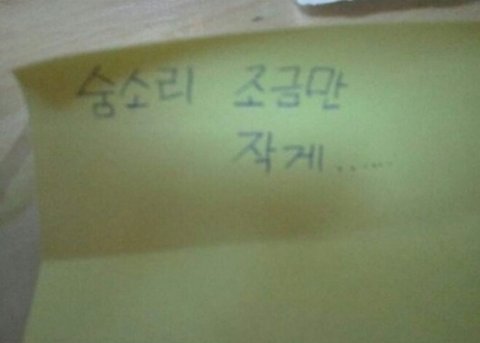 숨소리 조금만
작게......